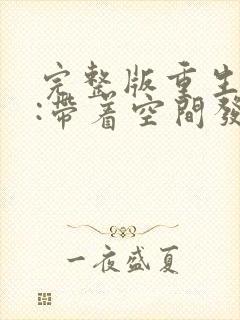 完整版重生
:帶着空間發
一夜盛夏